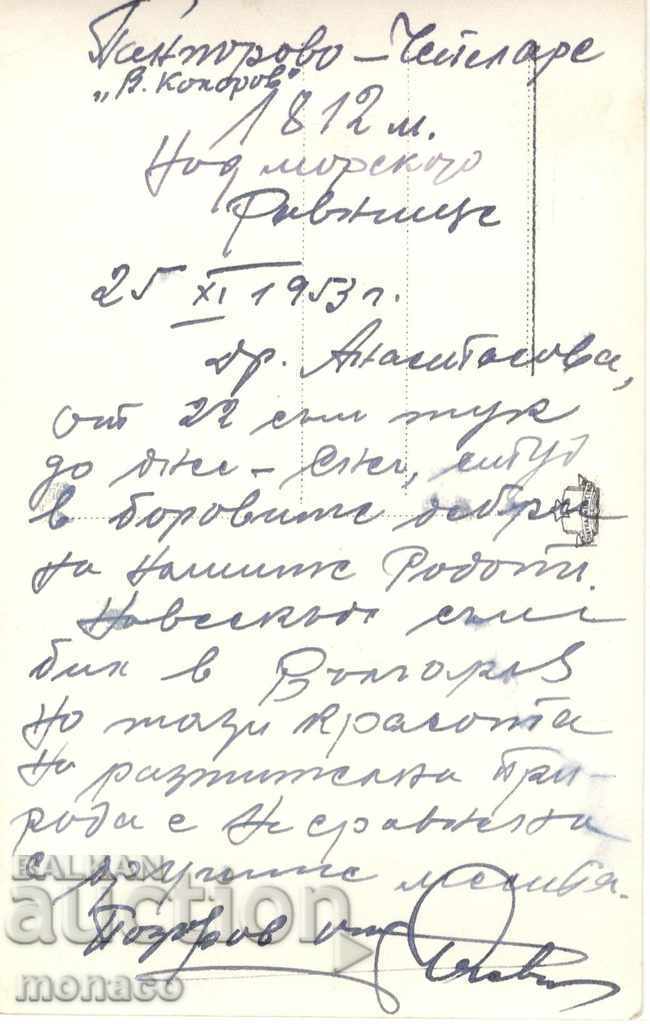 Пампорово – Чепеларе
„В. Коларов"
1812 м.
Над морското
равнище
25 XI 1953 г.
Др. Анастасова,
от 22 съм тук
до
в боровите дебри
на нашите Родопи.
Навсекъде съм
бил в България
но тази красота
на растителна при-
рода е несравнена
с другите места.
Поздрав от
BALKAN
auction
monaco